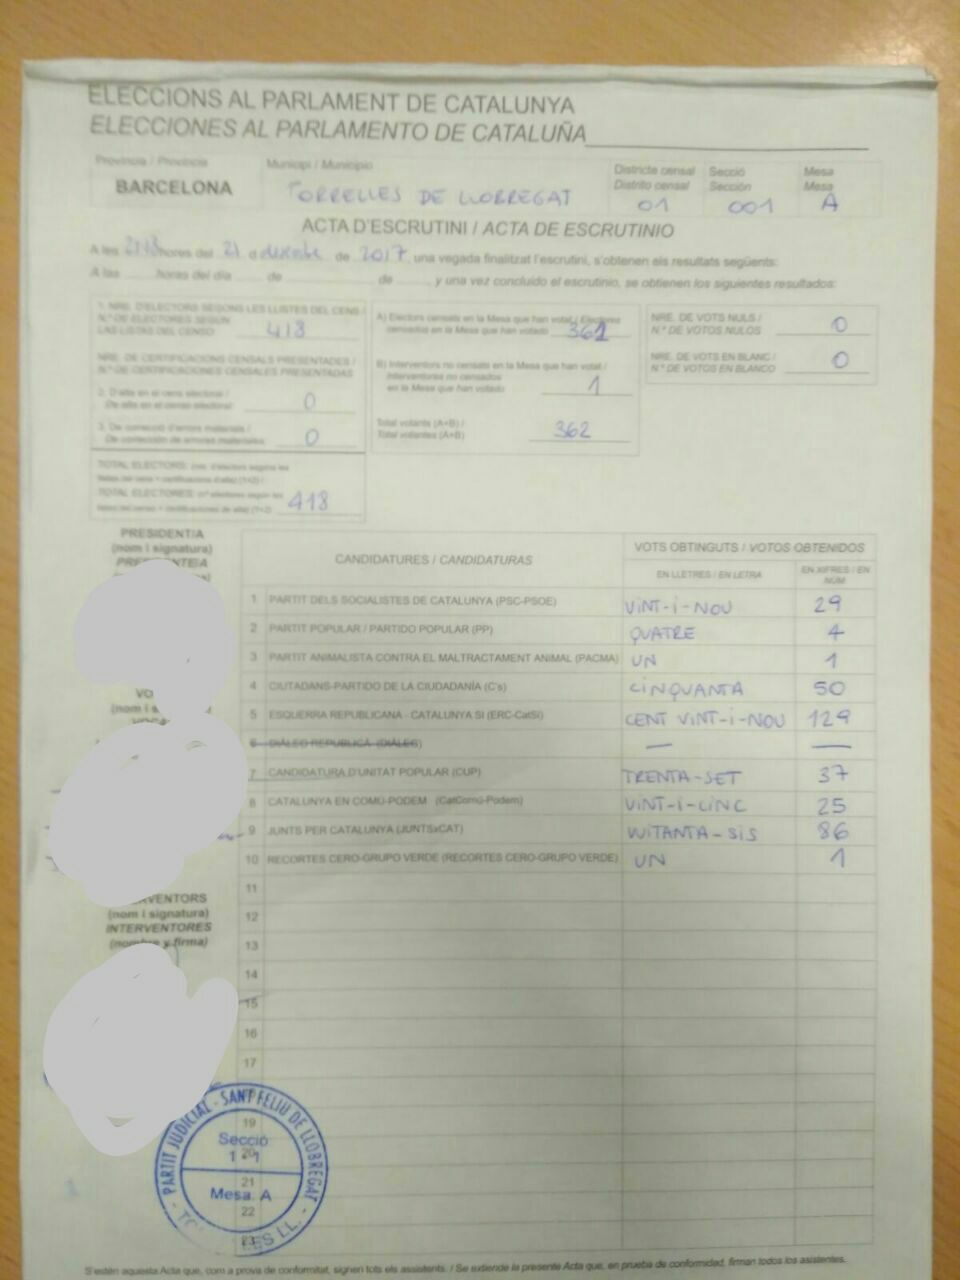 ELECCIONS AL PARLAMENT DE CATALUNYA
ELECCIONES AL PARLAMENTO DE CATALUÑA
Provincia / Provincia
BARCELONA
Municipi / Municipio
TORRELLES DE LLORREGAT
Districte censal
Distrito censal
01
Secció
Sección
001
Mesa
Mesa
A
ACTA D'ESCRUTINI / ACTA DE ESCRUTINIO
A les hores del 21 d desembre de 2017, una vegada finalitzat l'escrutini, s'obtenen els resultats següents:
A las horas del día de de y una vez concluido el escrutinio, se obtienen los siguientes resultados:
1. NRE. D'ELECTORS SEGONS LES LLISTES DEL CENS /
N.º DE ELECTORES SEGÚN
LAS LISTAS DEL CENSO
418
NRE. DE CERTIFICACIONS CENSALS PRESENTADES /
N.º DE CERTIFICACIONES CENSALES PRESENTADAS
2. D'alta en el cens electoral /
De alta en el censo electoral:
0
3. De correcció d'errors materials /
De corrección de errores materiales:
0
TOTAL ELECTORS:
TOTAL ELECTORES:
418
A) Electors censats en la Mesa que han votat / Electores
censados en la Mesa que han votado
361
B) Interventors no censats en la Mesa que han votat /
Interventores no censados
en la Mesa que han votado
1
Total votants (A+B) /
Total votantes (A+B)
362
NRE. DE VOTS NULS /
N.º DE VOTOS NULOS
0
NRE. DE VOTS EN BLANC /
N.º DE VOTOS EN BLANCO
0
PRESIDENT/A
(nom i signatura)
(nom i
INTERVENTORES
(nom i signatura)
CANDIDATURES / CANDIDATURAS
VOTS OBTINGUTS / VOTOS OBTENIDOS
EN LLETRES / EN LETRA
EN XIFRES / EN NÚM
1 PARTIT DELS SOCIALISTES DE CATALUNYA (PSC-PSOE) VINT-I-NOU 29
2 PARTIT POPULAR / PARTIDO POPULAR (PP) QUATRE 4
3 PARTIT ANIMALISTA CONTRA EL MALTRACTAMENT ANIMAL (PACMA) UN 1
4 CIUTADANS-PARTIDO DE LA CIUDADANÍA (C's) CINQUANTA 50
5 ESQUERRA REPUBLICANA - CATALUNYA SI (ERC-CatSí) CENT VINT-I-NOU 129
6 DIÀLEG REPUBLICÀ (DIÀLEG) — —
7 CANDIDATURA D'UNITAT POPULAR (CUP) TRENTA-SET 37
8 CATALUNYA EN COMÚ-PODEM (CatComú-Podem) VINT-I-CINC 25
9 JUNTS PER CATALUNYA (JUNTSxCAT) VUITANTA-SIS 86
10 RECORTES CERO-GRUPO VERDE (RECORTES CERO-GRUPO VERDE) UN 1
11
12
13
14
15
16
17
19
20
21
22
23
PARTIT JUDICIAL - SANT FELIU DE LLOBREGAT
Secció
Mesa. A
S'estén aquesta Acta que, com a prova de conformitat, signen tots els assistents. / Se extiende la presente Acta que, en prueba de conformidad, firman todos los asistentes.